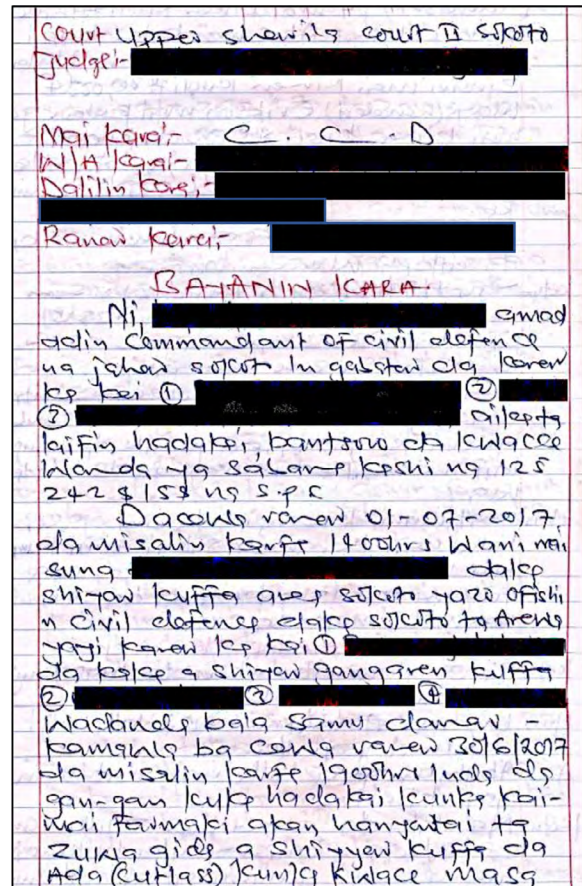 Court Upper sharila court II Sokoto
Judge:-
Mai kara:- C. C. D
W/A kara:-
Dalilin kara:-
Ranar kara:-
BAYANIN KARA.
Ni, amad
adin Commandant of civil defence
na jahar sokot In gabatar da karar
ka kai ① ②
③ aikata
laifin hadakai, bantsoro da kwacce
Wanda ya sabama kashi na 125
242 & 155 na s.p.c
Dacewa ranar 01-07-2017,
da misalin karfe 1400hrs Wani mai
suna dake
shiyar kuffa area sokoto yazo ofishi
n civil defence dake sokoto ta Arewa
yayi karar ka kai ①
da kake a shiyar gangaren kuffa
② ③ ④
Wadanda baia samu damar -
kamawa ba cewa ranar 30/6/2017
da misalin karfe 1900hr Inda da
gan-gan kuka hadakai kunka kai-
mai Farmaki akan hanyatai ta
zuwa gida a shiyyar kuffa da
Ada (cutlass) kunka kwace masa